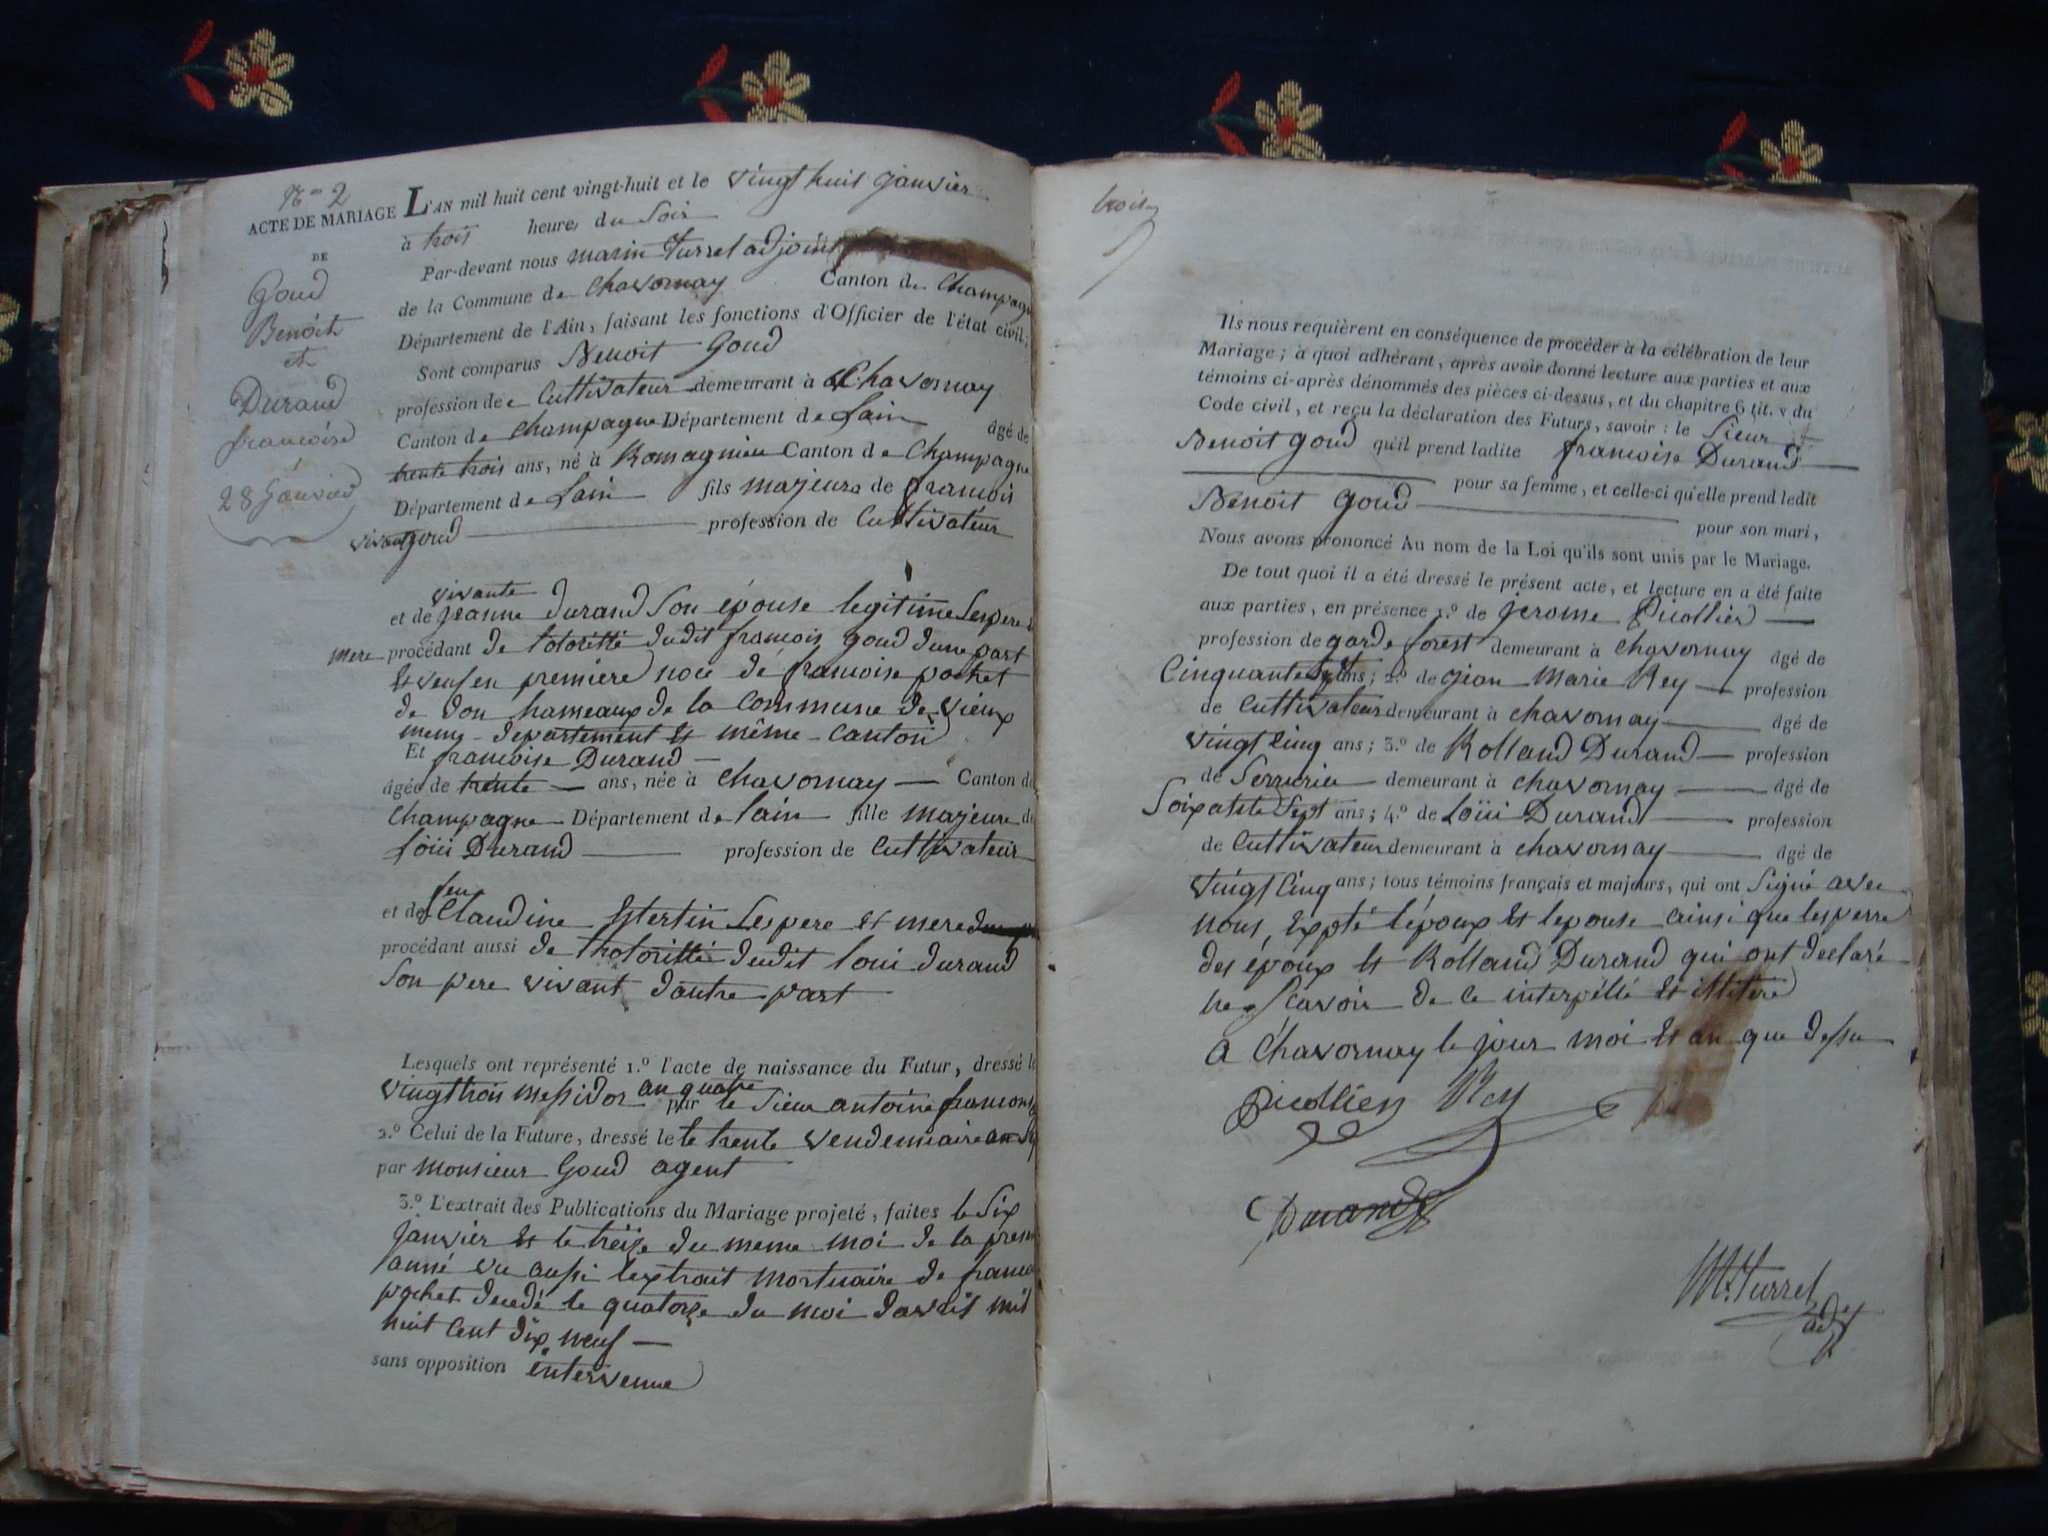 N° 2
ACTE DE MARIAGE
DE
Goud
Benoit
et
Durand
francoise
28 Janvier
L'AN mil huit cent vingt-huit et le vingt huit janvier
à trois heures du Soir
Par-devant nous marin turrel adjoint
de la Commune de Chavornay Canton de Champagne
Département de l'Ain, faisant les fonctions d'Officier de l'état civil;
Sont comparus Benoit Goud
profession de Cultivateur demeurant à Chavornay
Canton de champagne Département de Lain âgé de
trente trois ans, né à Romagnieu Canton de Champagne
Département de Lain fils majeure de francois
vivant goud profession de Cultivateur
vivante
et de jeanne durand Son épouse legitime Ses pere et
mere procédant de lotoritté dudit francois goud dune part
et veuf en premiere noce de francoise pochet
de don hameaux de la Commune de vieux
meme departement et même Canton
Et francoise Durand
âgée de trente ans, née à Chavornay Canton de
Champagne Département de lain fille majeure de
Loüi Durand profession de Cultivateur
feu
et de Claudine Estertin Ses pere et mere
procédant aussi de lhotoritté dudit loui durand
Son pere vivant dautre part
Lesquels ont représenté 1.º l'acte de naissance du Futur, dressé le
vingt trois messidor an quatre par le Sieur antoine
2.º Celui de la Future, dressé le le trente vendemiaire an
par monsieur Goud agent
3.º L'extrait des Publications du Mariage projeté, faites le Six
janvier et le treize du meme moi de la
anné vu aussi lextrait mortuaire de
pochet decedé le quatorze du moi davril mil
huit Cent dix neuf
sans opposition intervenue
trois
Ils nous requièrent en conséquence de procéder à la célébration de leur
Mariage; à quoi adhérant, après avoir donné lecture aux parties et aux
témoins ci-après dénommés des pièces ci-dessus, et du chapitre 6 tit. v du
Code civil, et reçu la déclaration des Futurs, savoir: le Sieur
Benoit goud qu'il prend ladite francoise Durand
pour sa femme, et celle-ci qu'elle prend ledit
Benoit goud pour son mari,
Nous avons prononcé Au nom de la Loi qu'ils sont unis par le Mariage.
De tout quoi il a été dressé le présent acte, et lecture en a été faite
aux parties, en présence 1.º de jerome Picollier
profession de garde forest demeurant à Chavornay âgé de
Cinquante Sept ans; 2.º de gean Marie Rey profession
de Cultivateur demeurant à chavornay âgé de
vingt Cinq ans; 3.º de Rolland Durand profession
de Serrurier demeurant à chavornay âgé de
Soixante Sept ans; 4.º de Loüi Durand profession
de Cultivateur demeurant à chavornay âgé de
vingt Cinq ans; tous témoins français et majeurs, qui ont Signé avec
nous, expté lépoux et lepouse ainsi que les perre
des époux et Rolland Durand qui ont declaré
ne Scavoir de ce interpellé et illiteré
a Chavornay le jour moi et an que dessu
Picollier Rey
Durand
M. Turrel
adj